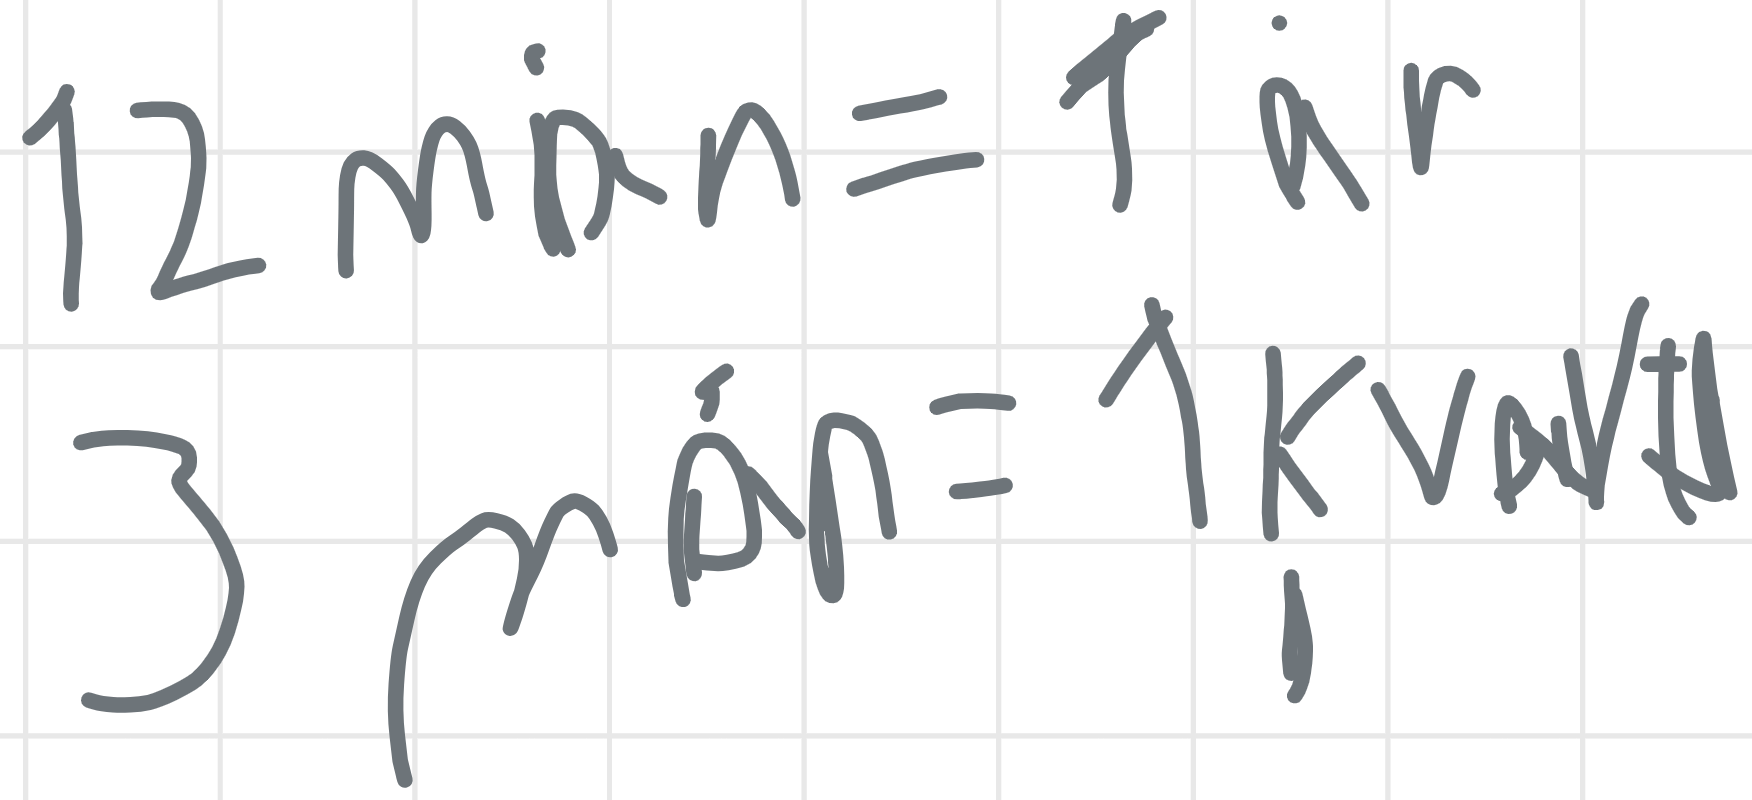 12 mån = 1 år
3 mån = 1 kvartal